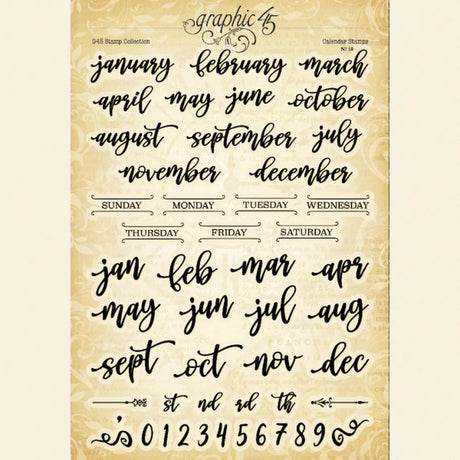 graphic 45
G45 Stamp Collection Calendar Stamps
Nº 18
january february march
april may june october
august september july
november december
SUNDAY MONDAY TUESDAY WEDNESDAY
THURSDAY FRIDAY SATURDAY
jan feb mar apr
may jun jul aug
sept oct nov dec
st nd rd th
0 1 2 3 4 5 6 7 8 9